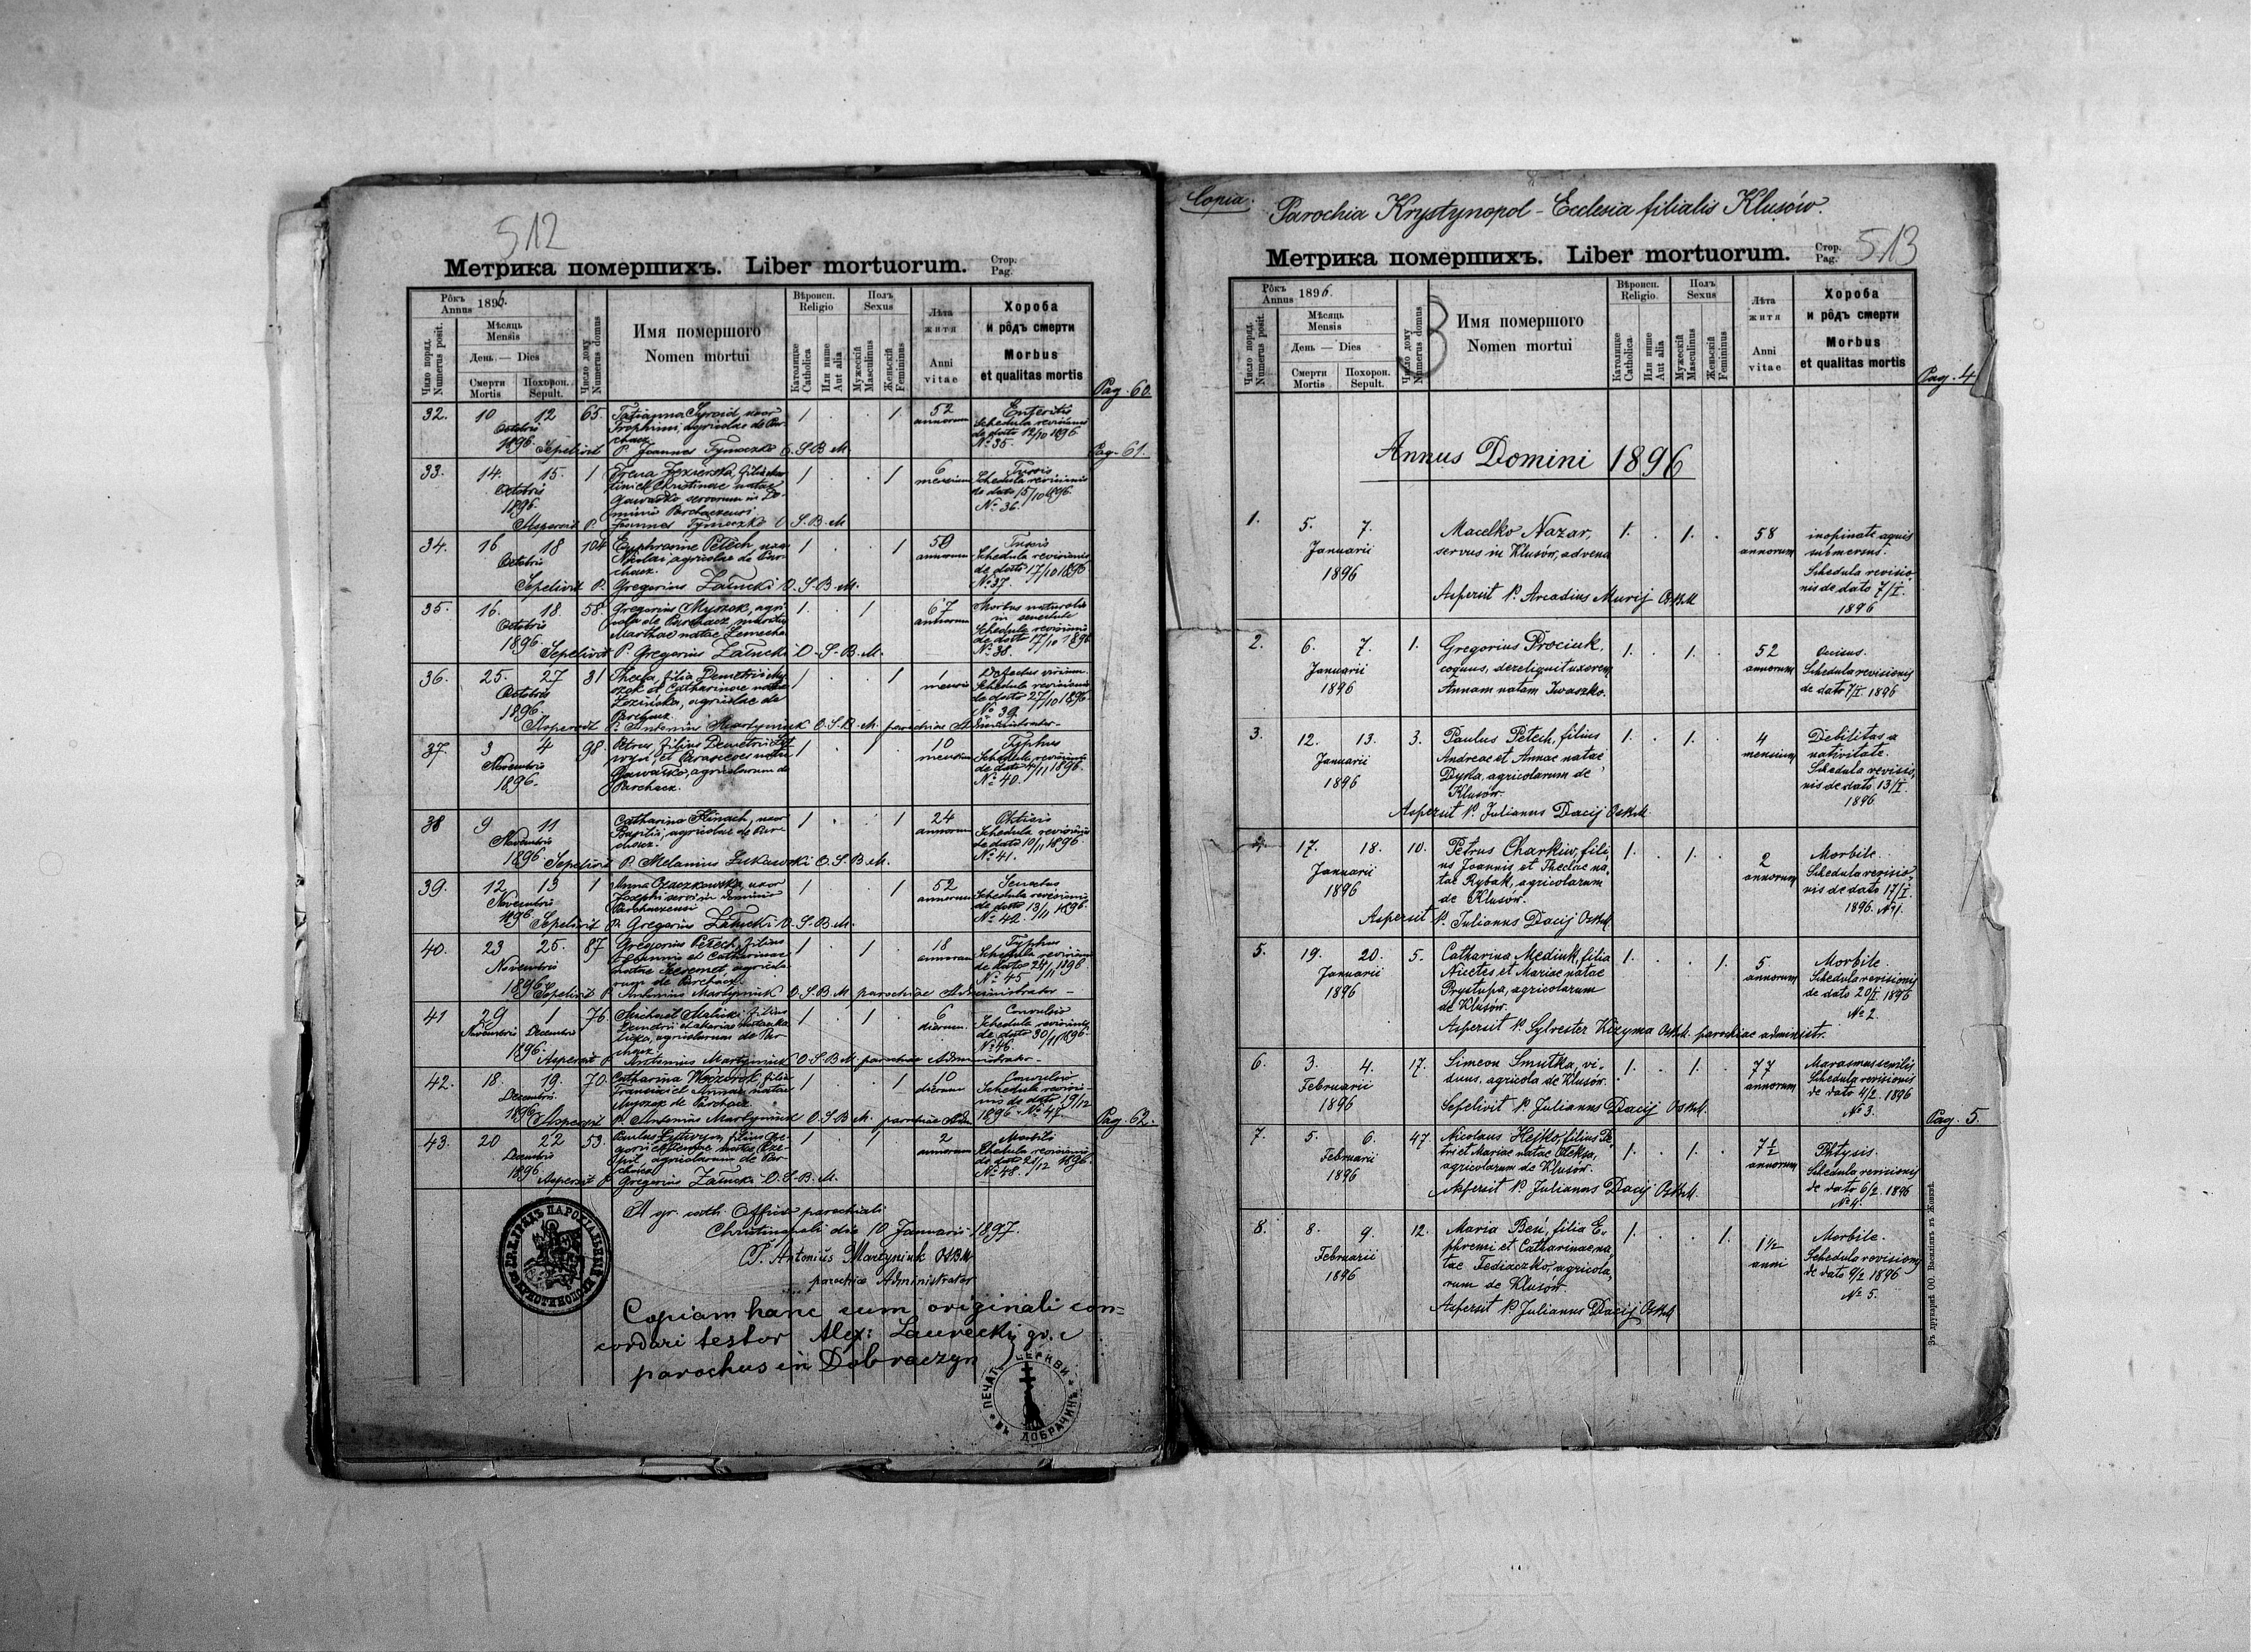 512
Метрика помершихъ. Liber mortuorum. Стор. Pag.
Рôкъ Annus 1896.
Число поряд. Numerus posit.
Мѣсяць Mensis
День — Dies
Смерти Mortis
Похорон. Sepult.
Число дому Numerus domus
Имя помершого
Nomen mortui
Вѣроисп. Religio
Католицке Catholica
Или инше Aut alia
Полъ Sexus
Мужескій Masculinus
Женьскій Femininus
Лѣта житя
Anni vitae
Хороба
и рôдъ смерти
Morbus
et qualitas mortis
Pag. 60.
32. 10 12 65. Tatianna Syroid, uxor 1 . . 1 52 Enteritis
Octobris Trophimi, agricolae de Par- annorum Schedula revisionis
chacz. de dato 12/10 1896
1896. Sepelivit P. Joannes Tymoczko O.S.B.M. Nº 35.
Pag. 61.
33. 14. 15. 1 Irena Jezierska, filia 1 . . 1 6 Tussis
Octobris et Christinae natae mensium Schedula revisionis
1896. servorum in Do- de dato 15/10 1896.
minio Parchaczensi. Nº 36.
Aspersit P. Joannes Tymoczko O.S.B.M.
34. 16 18 104 Euphrosine Petech uxor 1 . . 1 59 Tussis
Octobris Nicolai, agricolae de Par- annorum Schedula revisionis
chacz. de dato 17/10 1896
Sepelivit P. Gregorius Załucki O.S.B.M. Nº 37.
35. 16. 18. 58 Gregorius Myszok, agri- 1 . 1 67 Morbus naturalis
Octobris cola de Parchacz, maritus annorum in senectute
Marthae natae Schedula revisionis
de dato 17/10 1896
1896. Sepelivit P. Gregorius Załucki O.S.B.M. Nº 38.
36. 25. 27 31 Thecla, filia Demetrii My- 1 . . 1 1 Defectus virium.
Octobris szok et Catharinae natae mensis Schedula revisionis
1896. Łozińska, agricolae de de dato 27/10 1896
Parchacz. Nº 39.
Aspersit P. Antonius Martyniuk O.S.B.M. parochiae Administrator
37. 3 4 98. Petrus, filius Demetrii Lyt- 1 . 1 . 10 Typhus
Novembris wyn, et Parasceves natae mensium Schedula revisionis
1896. agricolarum de de dato 4/11 1896.
Parchacz. Nº 40.
38 9 11 Catharina Hlinach, uxor 1 . . 1 24
Novembris Basilii, agricolae de Par- annorum Schedula revisionis
chacz. de dato 10/11 1896.
1896. Sepelivit P. Melanius Łukawski O.S.B.M. Nº 41.
39. 12 13 1 Anna Czaczkowska, uxor 1 . . 1 52 Senectus
Novembris Josephi servi in dominio annorum Schedula revisionis
Parchaczensi de dato 13/11 1896.
1896. Sepelivit P. Gregorius Załucki O.S.B.M. Nº 42.
40. 23 25. 87 Gregorius Petech, filius 1 . 1 . 18 Typhus
Novembris Joannis et Catharinae annorum Schedula revisionis
natae Szeremet, agricola- de dato 24/11 1896
rum de Parchacz. Nº 45
1896 Sepelivit P. Antonius Martyniuk O.S.B.M. parochiae Administrator
41 29 1 76. Michael Malicki, filius 1 . 1 . 6 Convulsio
Novembris Decembris Demetrii dierum. Schedula revisionis
agricolarum de Par- de dato 30/11 1896.
chacz. Nº 46.
1896. Aspersit P. Antonius Martyniuk O.S.B.M. parochiae Administrator
42. 18. 19. 70. Catharina filia 1 . . 1 10 Convulsio
Decembris. Francisci et Annae natae dierum Schedula revisio-
Myszok de Parchacz. nis de dato 19/12
1896 Aspersit P. Antonius Martyniuk O.S.B.M. parochiae Adm. 1896. Nº 47.
Pag. 62.
43. 20 22 53. Paulus Lytwyn, filius Gre- 1 . 1 . 2 Morbili
Decembris gorii et natae annorum Schedula revisionis
agricolarum de Par- de dato 21/12 1896.
chacz. Nº 48.
1896. Aspersit P. Gregorius Załucki O.S.B.M.
A gr. cath. Officio parochiali
Christinopoli die 10 Januarii 1897.
P. Antonius Martyniuk OSBM
parochiae Administrator
Copiam hanc cum originali con=
cordari testor Alex: Laurecki gr. c
parochus in Dobraczyn
ПЕЧАТЬ ЦЕРКВИ ВЪ ДОБРАЧИНѢ
Copia. Parochia Krystynopol - Ecclesia filialis Klusów.
Метрика помершихъ. Liber mortuorum. Стор. Pag. 513
Рôкъ Annus 1896.
Число поряд. Numerus posit.
Мѣсяць Mensis
День — Dies
Смерти Mortis
Похорон. Sepult.
Число дому Numerus domus
Имя помершого
Nomen mortui
Вѣроисп. Religio
Католицке Catholica
Или инше Aut alia
Полъ Sexus
Мужескій Masculinus
Женьскій Femininus
Лѣта житя
Anni vitae
Хороба
и рôдъ смерти
Morbus
et qualitas mortis
Pag. 4
Annus Domini 1896
1. 5. 7. Macełko Nazar, 1. . 1. . 58 inopinate aquis
Januarii servus in Klusów, advena annorum submersus.
1896 Schedula revisio-
nis de dato 7/I.
Aspersit P. Arcadius Murij OSBM 1896
2. 6. 7. 1. Gregorius Prociuk, 1. . 1. . 52 Occisus.
Januarii coquus, dereliquit uxorem annorum Schedula revisionis
1896 Annam natam Iwaszko. de dato 7/I 1896
3. 12. 13. 3. Paulus Petech, filius 1. . 1. . 4 Debilitas a
Januarii Andreae et Annae natae mensium nativitate.
1896 Dyda, agricolarum de Schedula revisio-
Klusów. nis de dato 13/I.
Aspersit P. Julianus Dacij OSBM. 1896
4. 17. 18. 10. Petrus Charkiw, fili- 1. . 1. . 2 Morbile.
Januarii us Joannis et Theclae na- annorum Schedula revisio-
1896 tae Rybak, agricolarum nis de dato 17/I.
de Klusów. 1896. Nº 1.
Aspersit P. Julianus Dacij OSBM.
5. 19. 20. 5. Catharina Mediuk, filia 1. . . 1. 5 Morbile.
Januarii Nicetes et Mariae natae annorum Schedula revisionis
1896 Prystupa, agricolarum de dato 20/I 1896
de Klusów. Nº 2.
Aspersit P. Sylvester Kizyma OSBM. parochiae administr.
6. 3. 4. 17. Simeon Smutka, vi- 1. . 1. . 77 Marasmus senilis
Februarii duus, agricola de Klusów. annorum Schedula revisionis
1896 Sepelivit P. Julianus Dacij OSBM. de dato 4/2 1896
Nº 3.
Pag. 5.
7. 5. 6. 47 Nicolaus Hejko, filius Pe- 1. . 1. . 7½ Phtysis.
Februarii tri et Mariae natae Oleksa, annorum Schedula revisionis
1896 agricolarum de Klusów. de dato 6/2 1896
Aspersit P. Julianus Dacij OSBM. Nº 4.
8. 8. 9. 12. Maria Beń, filia E- 1. . . 1. 1½ Morbile.
Februarii phremi et Catharinae na- anni Schedula revisionis
1896 tae Fediaczko, agricola- de dato 9/2 1896
rum de Klusów. Nº 5.
Aspersit P. Julianus Dacij OSBM
Зъ друкарнѣ ОО. Василіянъ въ Жовквѣ.